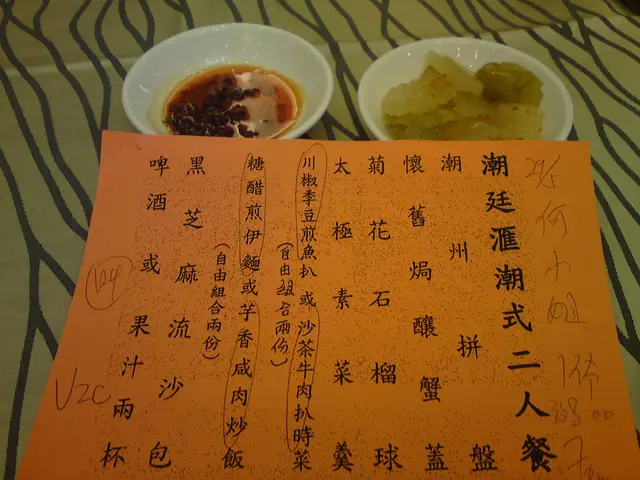 29/5 何小姐 1席
潮廷滙潮式二人餐
潮州拼盤
懷舊焗釀蟹蓋
菊花石榴球
太極素菜羹
川椒季豆煎魚扒或沙茶牛肉扒時菜
(自由組合兩份)
糖醋煎伊麵或芋香咸肉炒飯
(自由組合兩份)
黑芝麻流沙包
啤酒或果汁兩杯
V2C